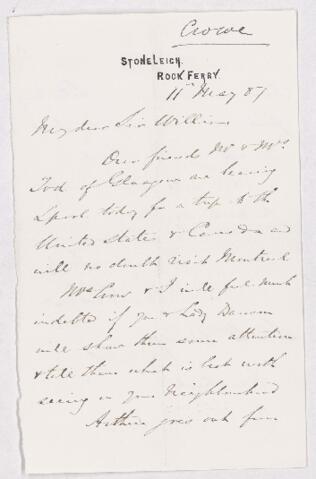 Crowe
STONELEIGH,
ROCK FERRY.
11th May 87
My dear Sir William
Our friends Mr & Mrs
Tod of Glasgow are leaving
Lpool today for a trip to the
United States & Canada and
will no doubt visit Montreal
Mrs & I will feel much
indebted if you & Lady Dawson
will show them some attention
& tell them what is best worth
seeing in your neighbourhood
Arthur goes out from